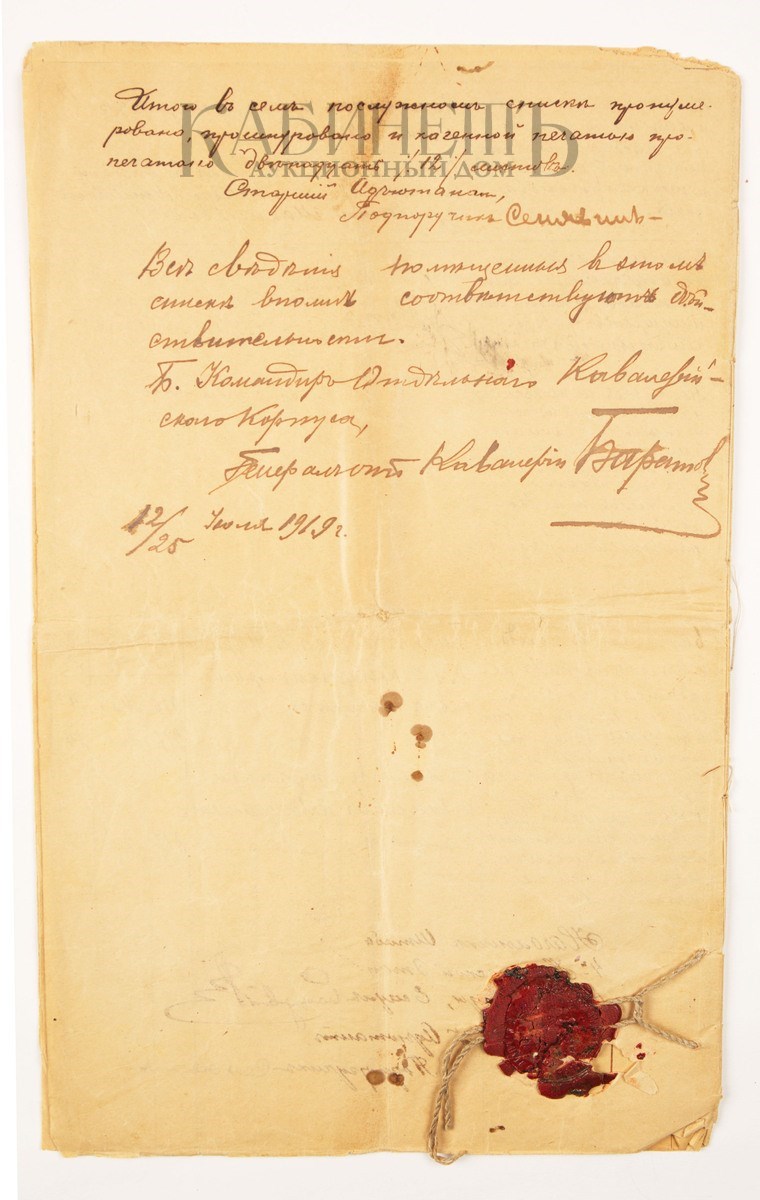 Итого въ семъ послужномъ спискѣ пронуме-
ровано, прошнуровано и казенной печатью про-
печатано двѣнадцать /12/ листовъ.
КАБИНЕТЪ
АУКЦИОННЫЙ ДОМЪ
Старшій Адъютантъ,
Подпоручикъ
Всѣ свѣдѣнія помѣщенныя въ этомъ
спискѣ вполнѣ соотвѣтствуютъ дѣй-
ствительности.
Б. Командиръ Отдѣльнаго Кавалерій-
скаго Корпуса,
Генералъ отъ Кавалеріи Баратов
12/25 Іюля 1919 г.